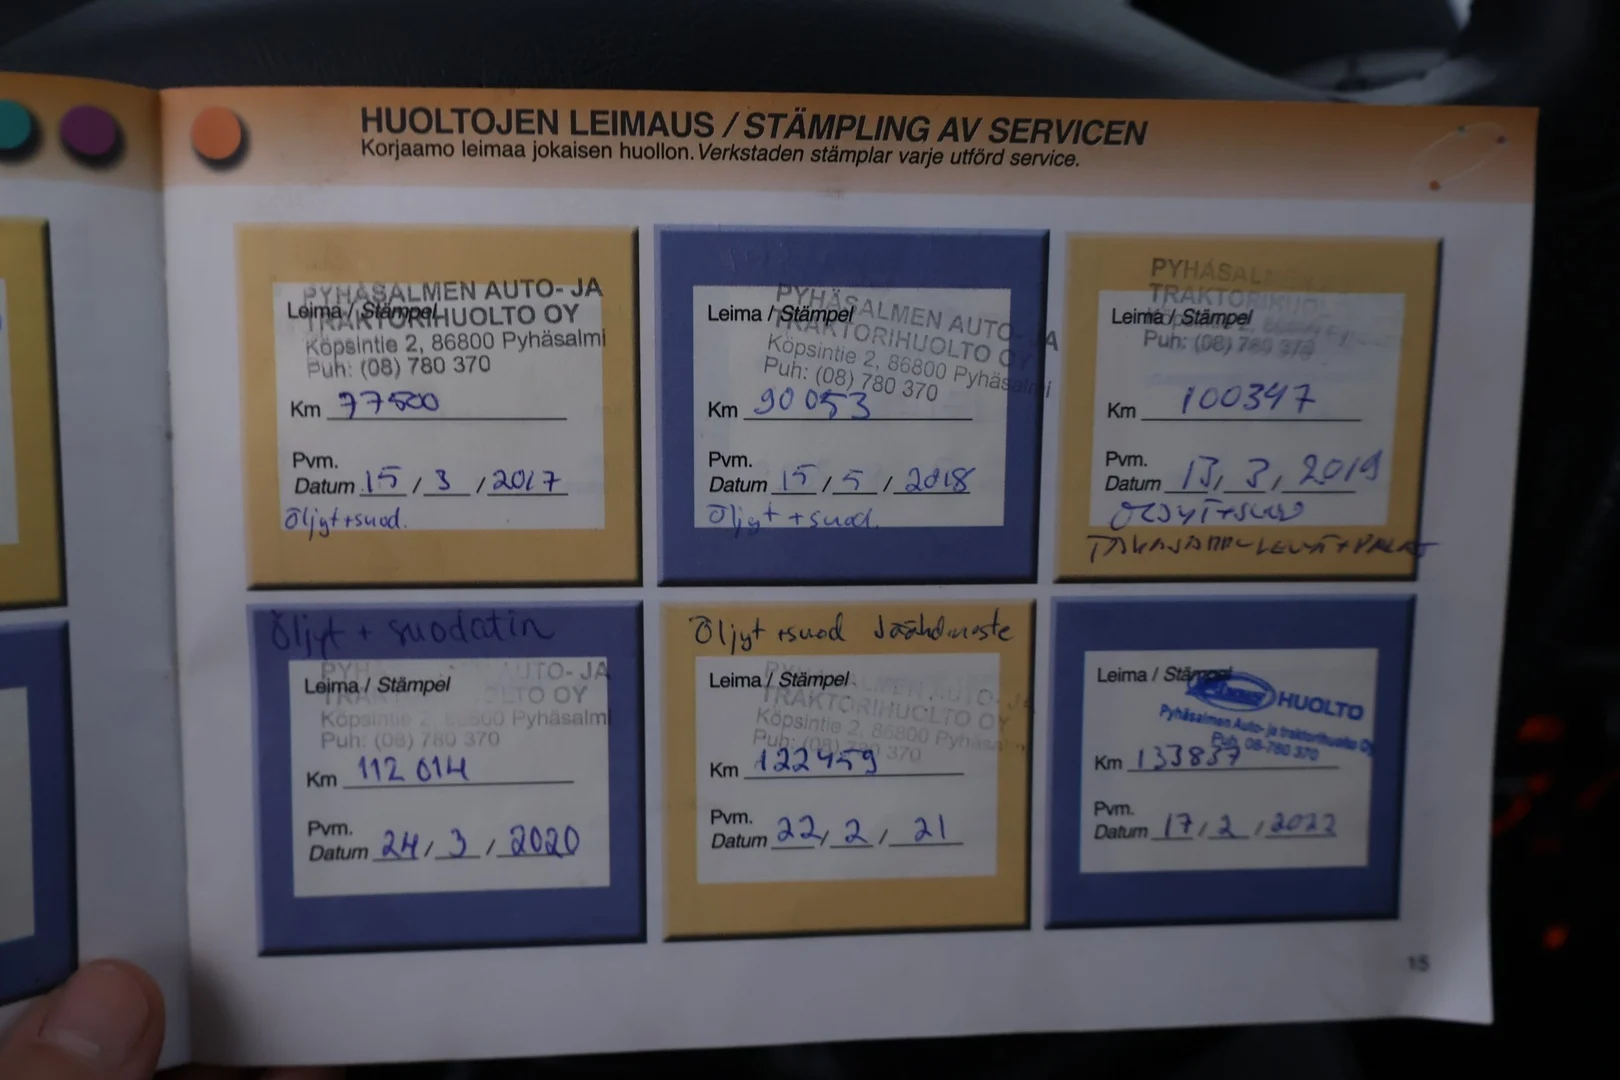 HUOLTOJEN LEIMAUS / STÄMPLING AV SERVICEN
Korjaamo leimaa jokaisen huollon. Verkstaden stämplar varje utförd service.
PYHÄSALMEN AUTO- JA
Leima / Stämpel
TRAKTORIHUOLTO OY
Köpsintie 2, 86800 Pyhäsalmi
Puh: (08) 780 370
Km 77500
Pvm.
Datum 15 / 3 / 2017
Öljyt+suod.
PYHÄSALMEN AUTO- JA
Leima / Stämpel
TRAKTORIHUOLTO OY
Köpsintie 2, 86800 Pyhäsalmi
Puh: (08) 780 370
Km 90 053
Pvm.
Datum 15 / 5 / 2018
Öljyt +suod.
PYHÄSALMEN
TRAKTORIHUO
Leima / Stämpel
Puh: (08) 780 370
Km 100347
Pvm.
Datum 13, 3, 2019
ÖLJYT+SUOD
TAKAJARRULEVYT+PALAT
Öljyt + suodatin
PYH AUTO- JA
Leima / Stämpel
TRA OLTO OY
Köpsintie 2, 86800 Pyhäsalmi
Puh: (08) 780 370
Km 112 014
Pvm.
Datum 24 / 3 / 2020
Öljyt +suod Jäähdneste
PYHÄSALMEN AUTO- JA
Leima / Stämpel
TRAKTORIHUOLTO OY
Köpsintie 2, 86800 Pyhäsalmi
Puh: (08) 780 370
Km 122459
Pvm.
Datum 22, 2 / 21
Leima / Stämpel
HUOLTO
Pyhäsalmen Auto- ja traktorihuolto Oy
Puh. 08-780 370
Km 133837
Pvm.
Datum 17 / 2 / 2022
15